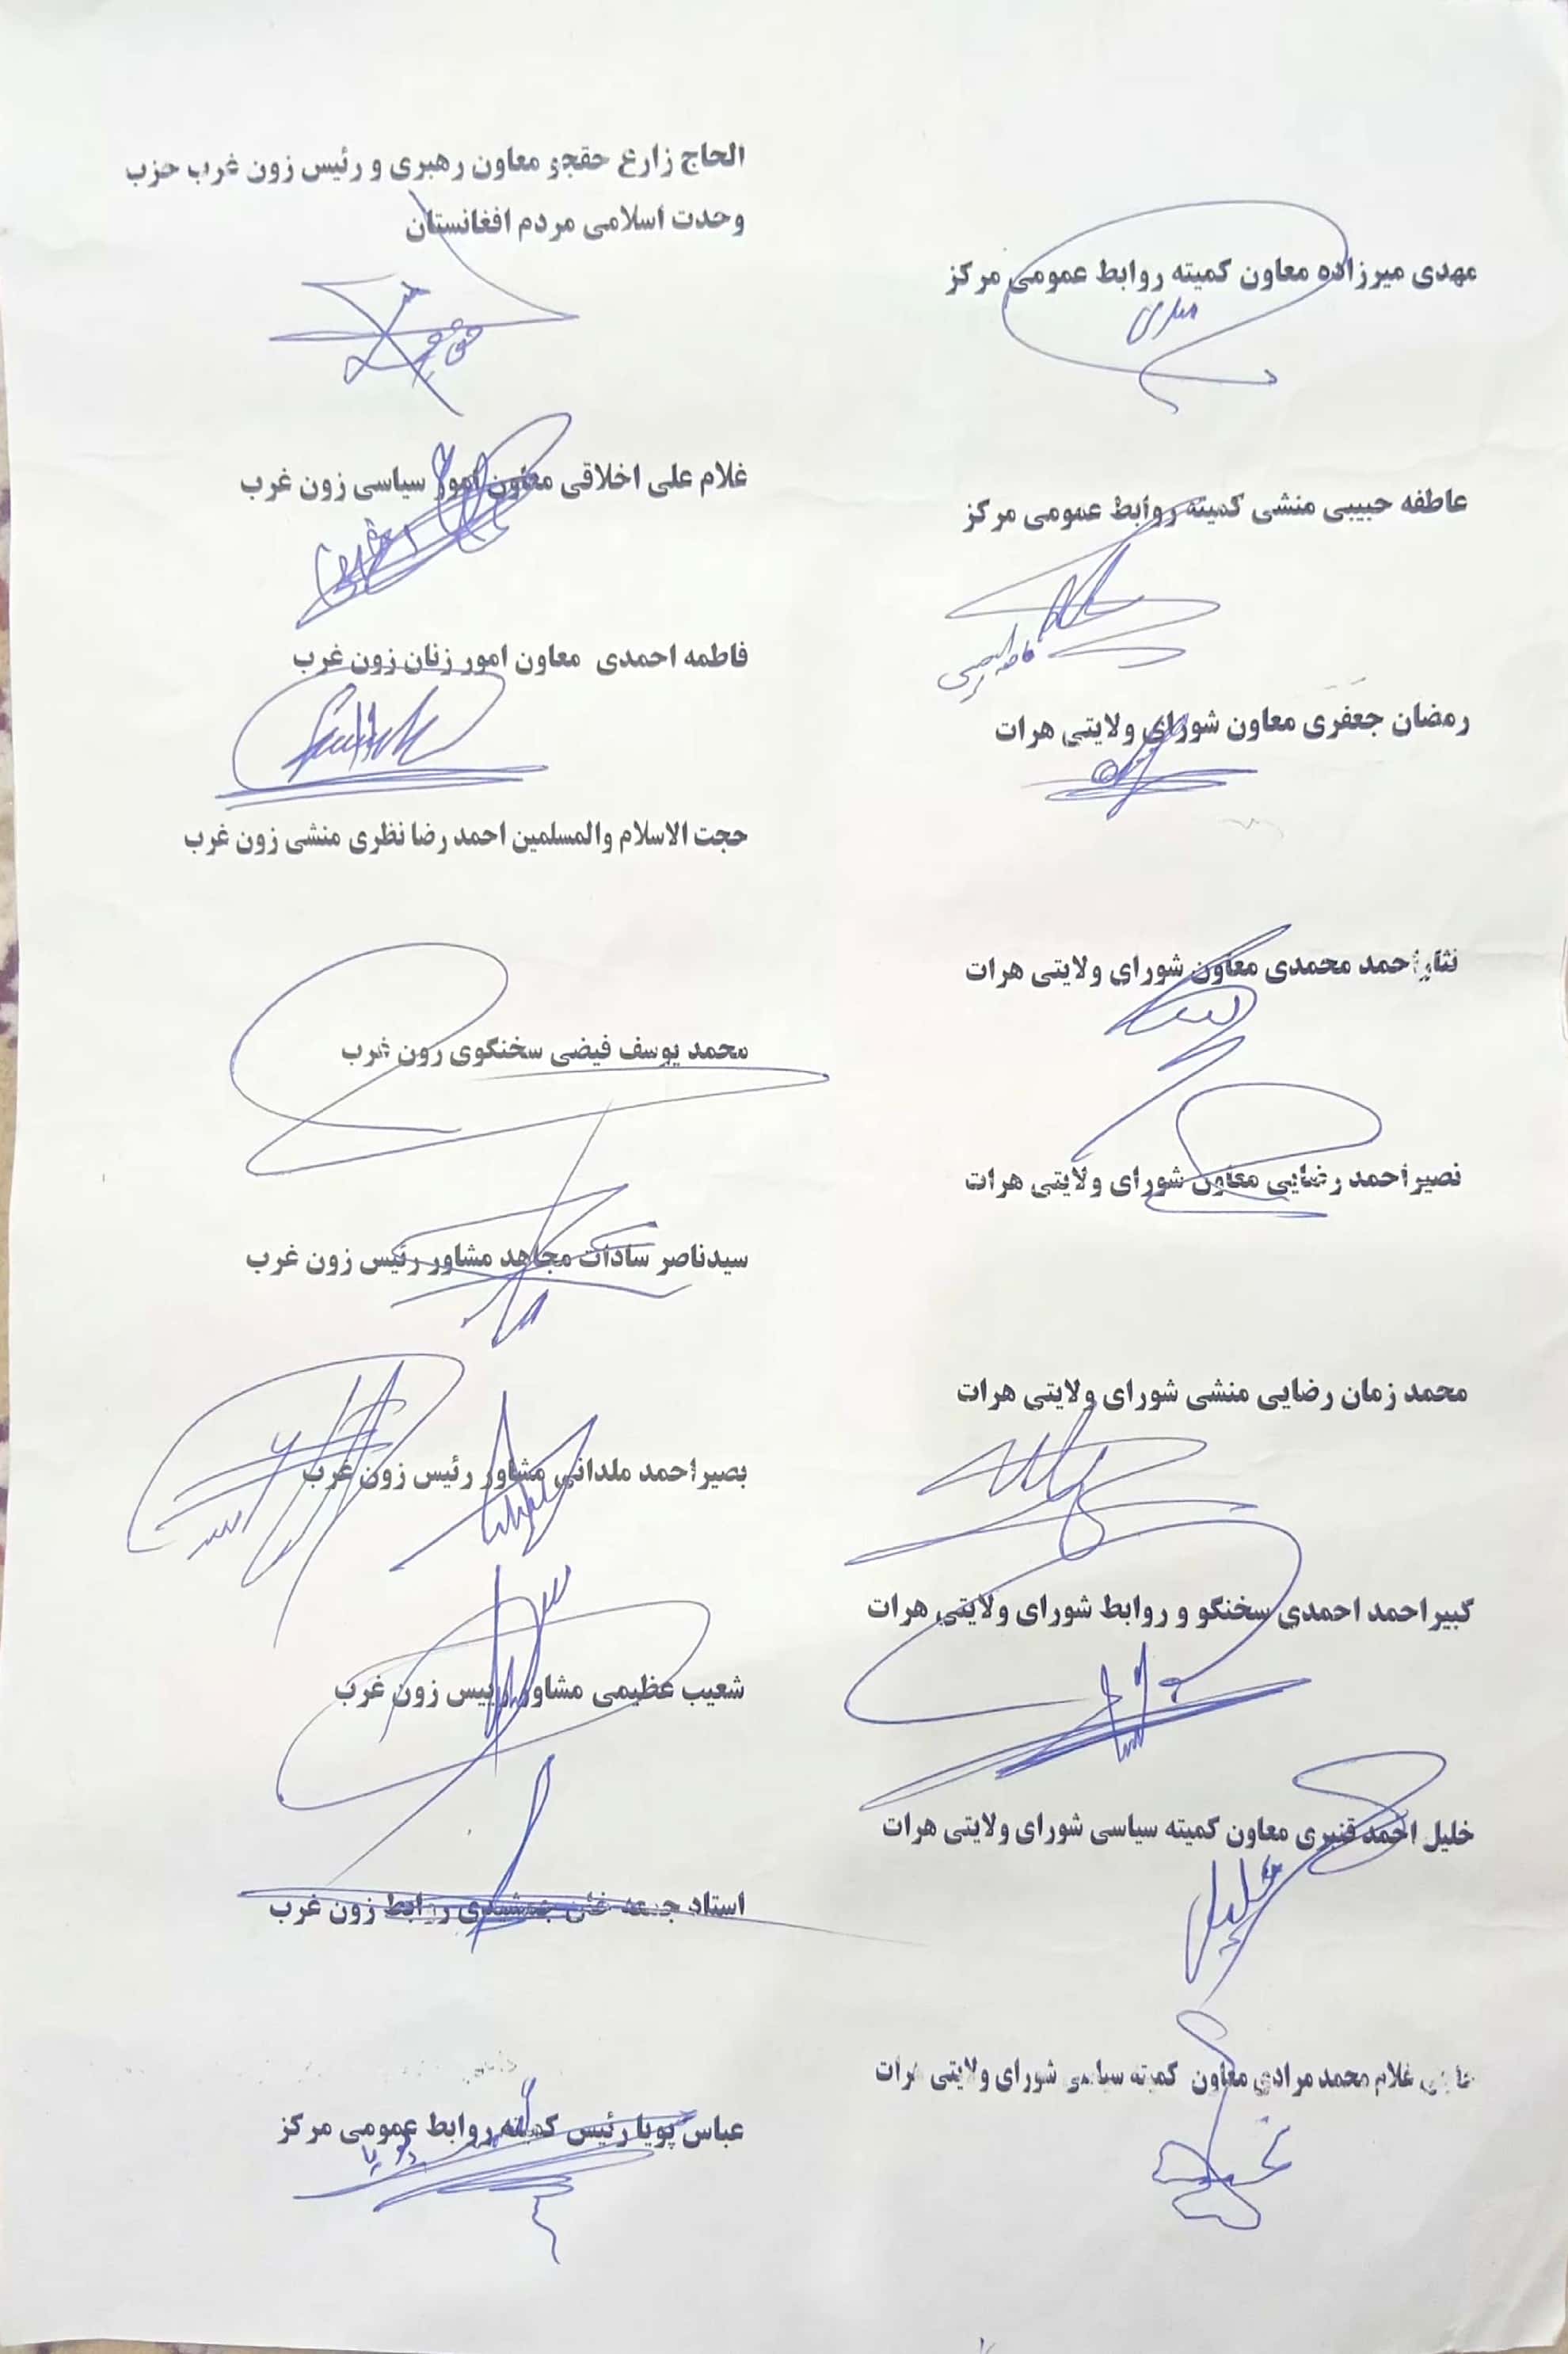 مهدی میرزاده معاون کمیته روابط عمومی مرکز
مهدی
عاطفه حبیبی منشی کمیته روابط عمومی مرکز
رمضان جعفری معاون شورای ولایتی هرات
نثاراحمد محمدی معاون شورای ولایتی هرات
نصیراحمد رضایی معاون شورای ولایتی هرات
محمد زمان رضایی منشی شورای ولایتی هرات
کبیراحمد احمدی سخنگو و روابط شورای ولایتی هرات
خلیل احمد قنبری معاون کمیته سیاسی شورای ولایتی هرات
خلیل
غلام محمد مرادی معاون کمیته سیاسی شورای ولایتی هرات
الحاج زارع حقجو معاون رهبری و رئیس زون غرب حزب
وحدت اسلامی مردم افغانستان
غلام علی اخلاقی معاون امور سیاسی زون غرب
فاطمه احمدی معاون امور زنان زون غرب
حجت الاسلام والمسلمین احمد رضا نظری منشی زون غرب
محمد یوسف فیضی سخنگوی زون غرب
سیدناصر سادات مجاهد مشاور رئیس زون غرب
بصیراحمد ملدانی مشاور رئیس زون غرب
شعیب عظیمی مشاور رییس زون غرب
استاد جمعه خان جمشیدی روابط زون غرب
عباس پویا رئیس کمیته روابط عمومی مرکز
پویا